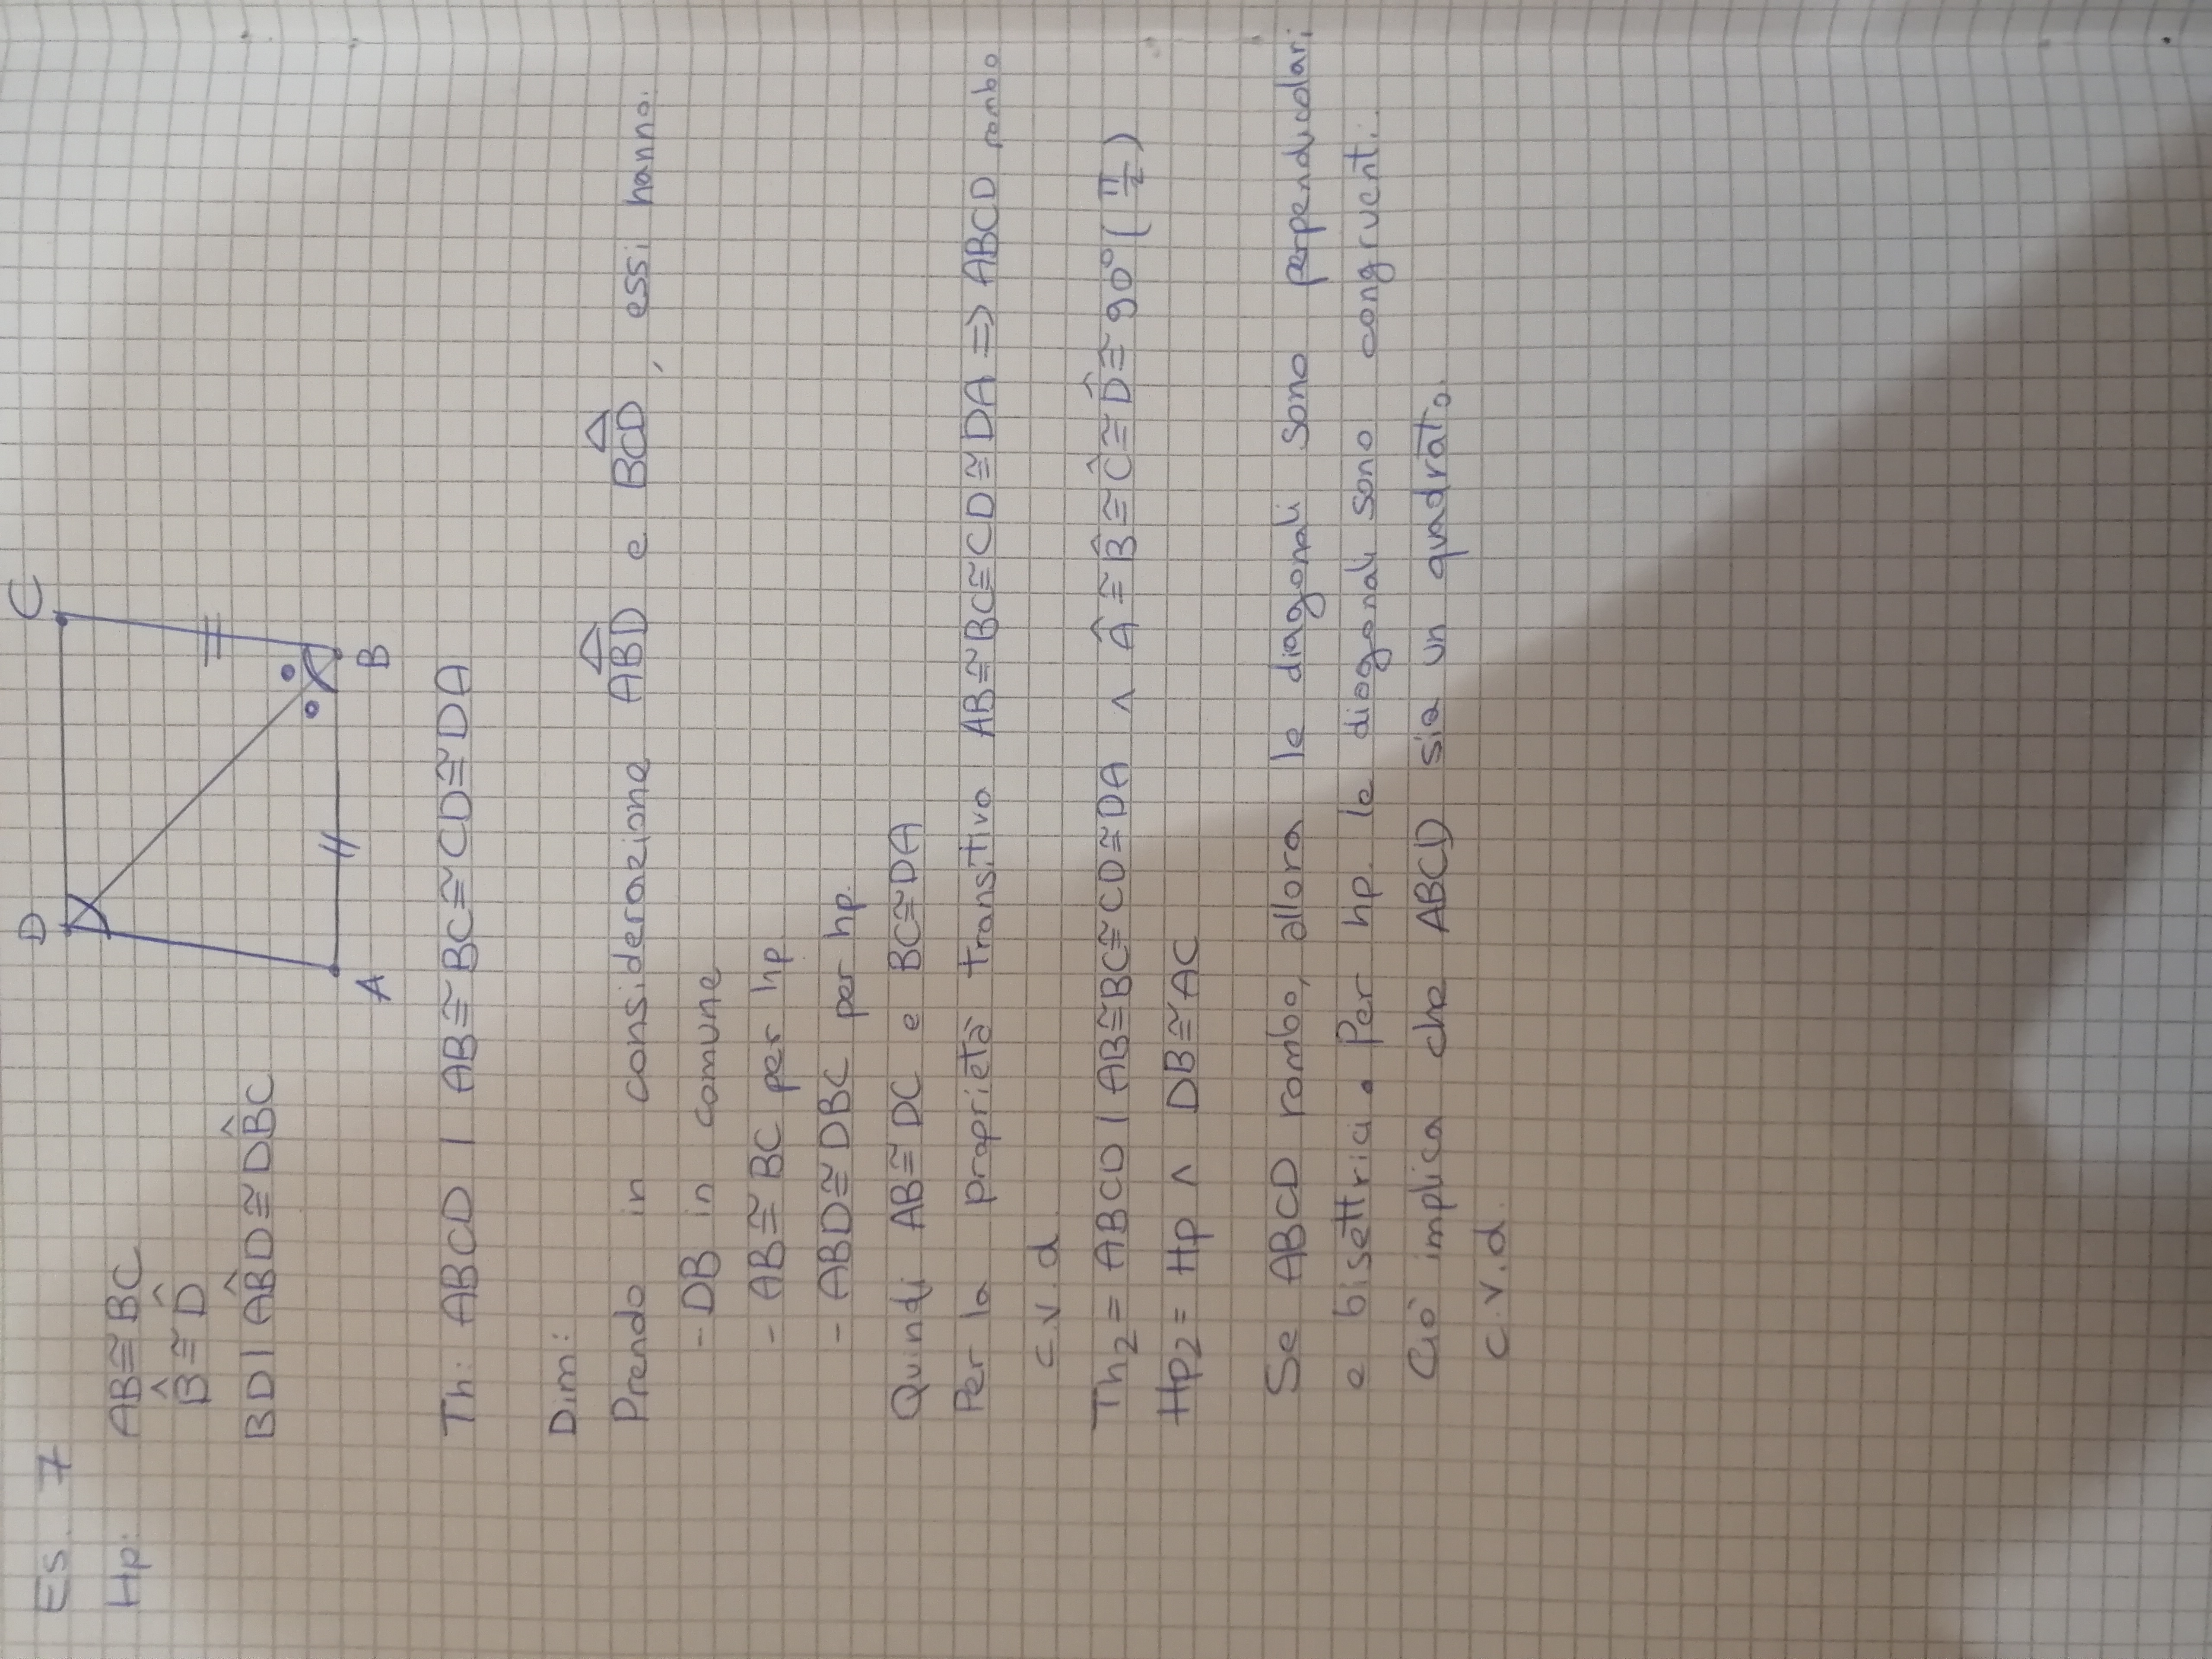 Es. 7
Hp: AB≅BC
B̂≅D̂
BD | AB̂D≅DB̂C
D
C
A
B
Th: ABCD | AB≅BC≅CD≅DA
Dim:
Prendo in considerazione ABD e BCD, essi hanno:
- DB in comune
- AB≅BC per hp
- ABD≅DBC per hp.
Quindi AB≅DC e BC≅DA
Per la proprietà transitiva AB≅BC≅CD≅DA => ABCD rombo
c.v.d.
Th₂ = ABCD | AB≅BC≅CD≅DA ∧ Â≅B̂≅Ĉ≅D̂≅90° (π/2)
Hp₂ = Hp ∧ DB≅AC
Se ABCD rombo, allora le diagonali sono perpendicolari
e bisettrici. Per hp. le diagonali sono congruenti.
Ciò implica che ABCD sia un quadrato.
c.v.d.